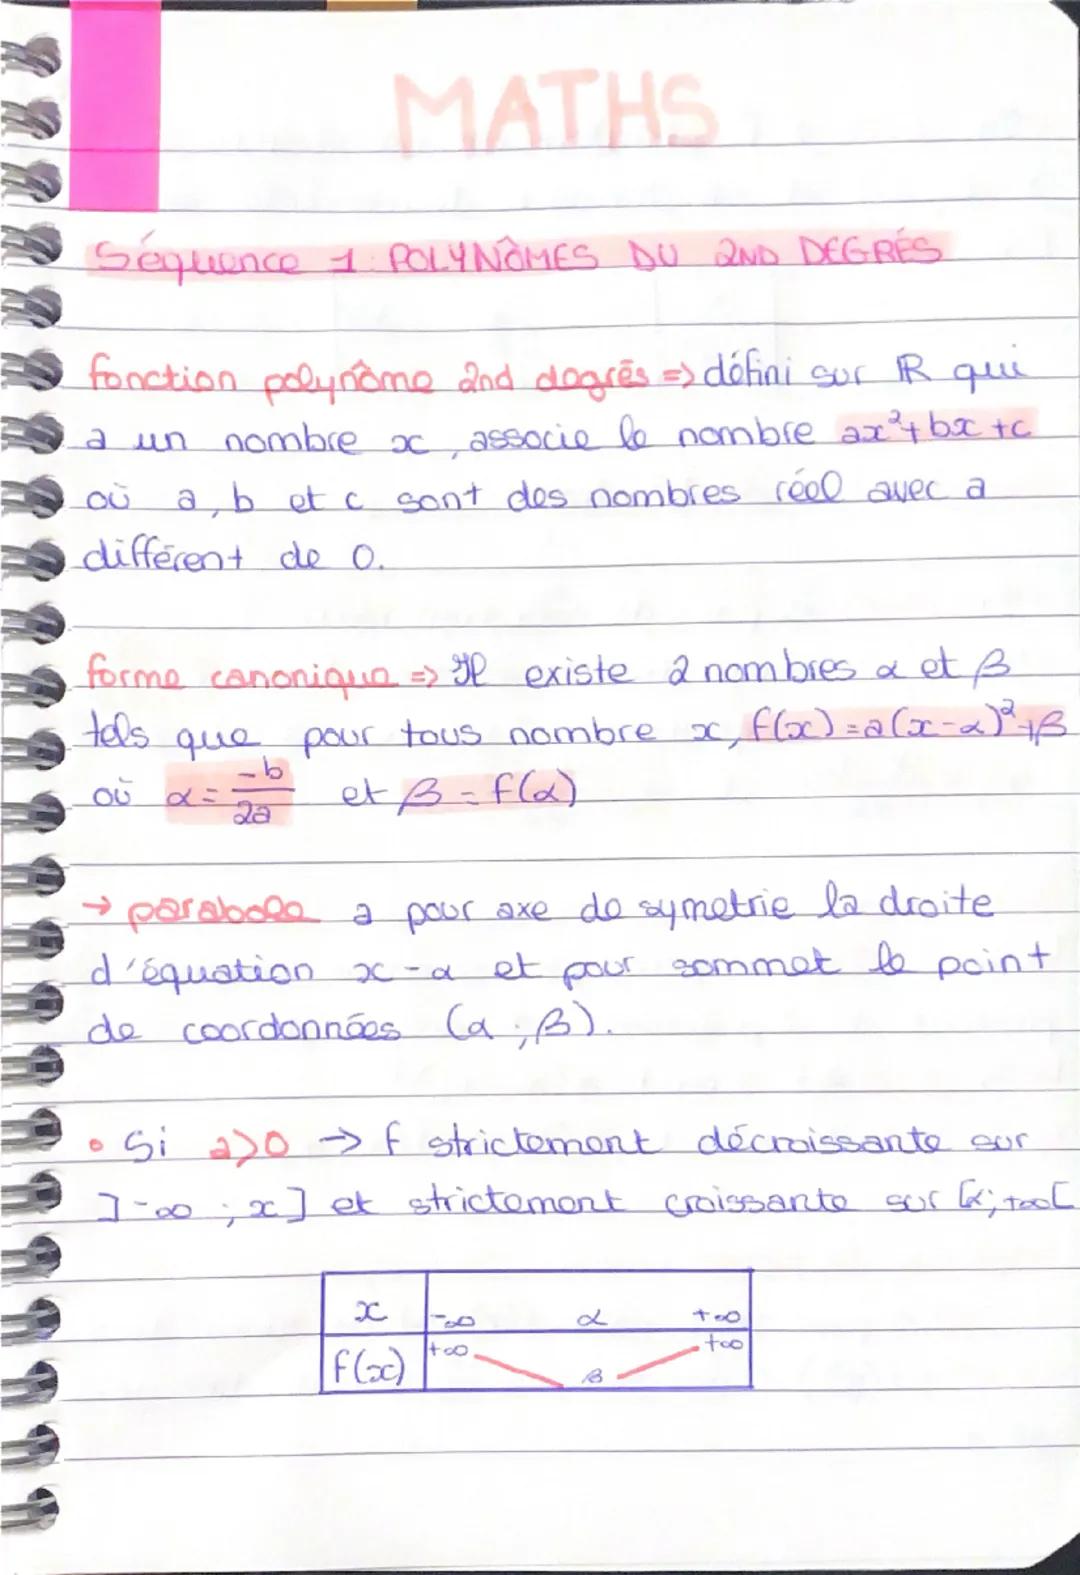 MATHS
Séquence 1: POLYNÔMES DU 2ND DEGRÉS
fonction polynôme 2nd degrés => défini sur ℝ qui
a un nombre x, associe le nombre ax²+bx+c
où a, b et c sont des nombres réel avec a
différent de 0.
forme canonique => Il existe 2 nombres α et β
tels que pour tous nombre x, f(x)=a(x-α)²+β
où α = -b/2a et β = f(α)
→ parabole a pour axe de symetrie la droite
d'équation x-α et pour sommet le point
de coordonnées (α ; β).
• Si a>0 → f strictement décroissante sur
]-∞ ; x] et strictement croissante sur [α; +∞[
x -∞ α +∞
f(x) +∞ β +∞